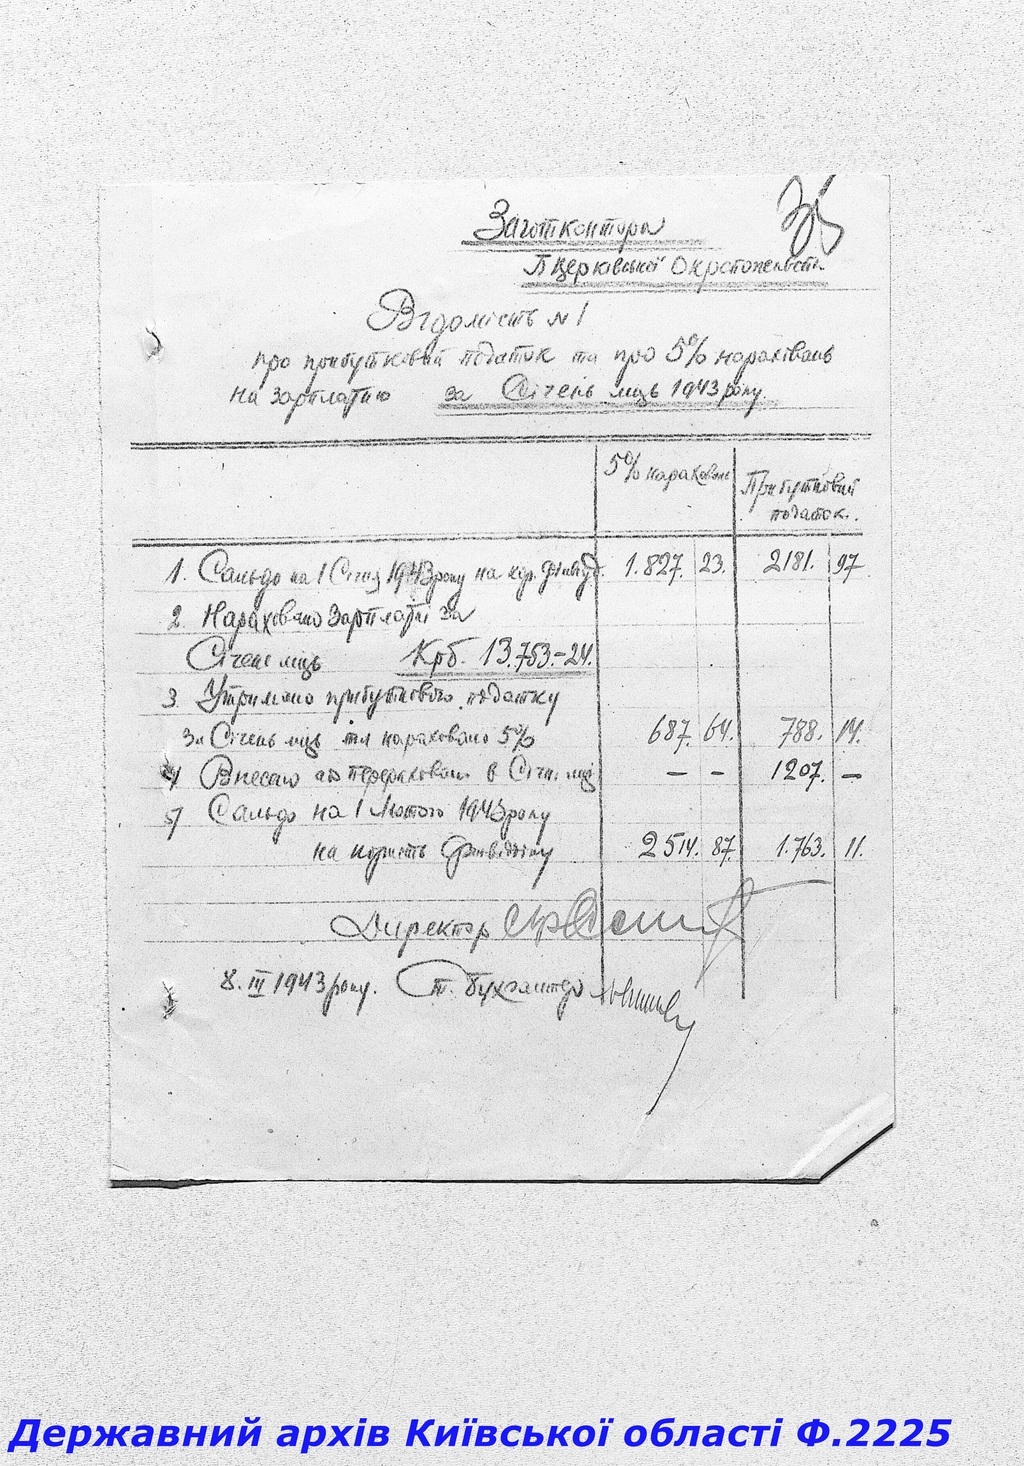 35
Заготконтора
Б Церківської Окрспоживспілк.
Відомість №1
про прибутковий податок та про 5% нарахувань
на зарплатню за Січень м-ць 1943 року.
5% нарахован
Прибутковий
податок.
1. Сальдо на 1 Січня 1943 року на кор. Фінвід. 1.827. 23. 2181. 97
2. Нараховано зарплатні за
Січень м-ць Крб. 13.753.-24.
3. Утримано прибуткового податку
за Січень м-ць та нараховано 5% 687. 64. 788. 14.
4/ Внесено або перераховано в Січні м-ці — — 1207. —
5/ Сальдо на 1 Лютого 1943 року
на користь Фінвідділу 2514. 87. 1.763. 11.
Директор
8. III 1943 року. Ст. бухгалтер
Державний архів Київської області Ф.2225